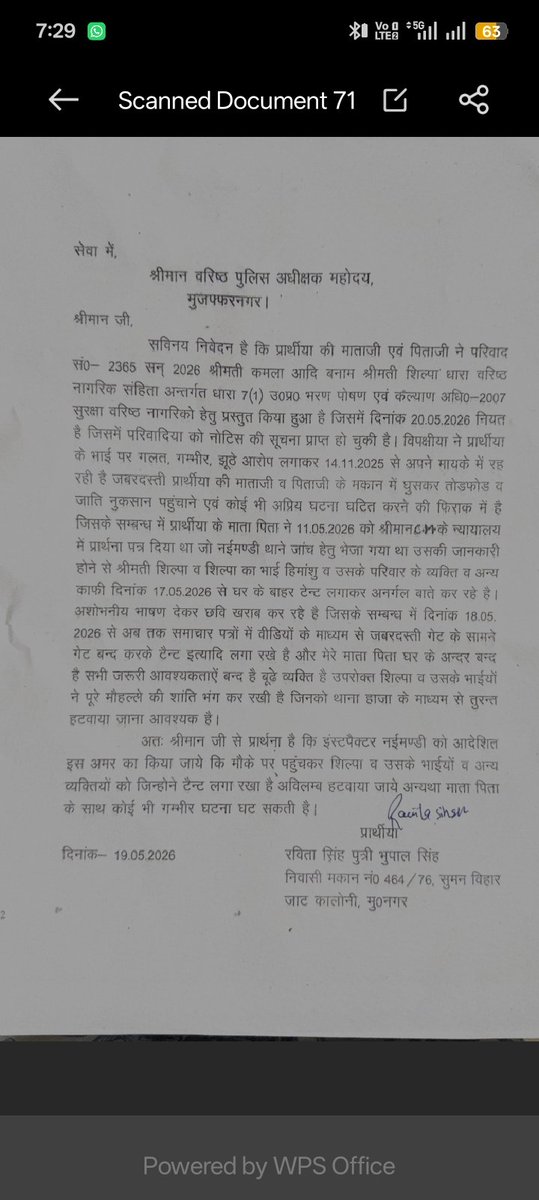 7:29
Vo
LTE2
5G
63
Scanned Document 71
सेवा में,
श्रीमान वरिष्ठ पुलिस अधीक्षक महोदय,
मुजफ्फरनगर।
श्रीमान जी,
सविनय निवेदन है कि प्रार्थीया की माताजी एवं पिताजी ने परिवाद
सं0– 2365 सन् 2026 श्रीमती कमला आदि बनाम श्रीमती शिल्पा धारा वरिष्ठ
नागरिक संहिता अन्तर्गत धारा 7(1) उ0प्र0 भरण पोषण एवं कल्याण अधि0–2007
सुरक्षा वरिष्ठ नागरिको हेतु प्रस्तुत किया हुआ है जिसमें दिनांक 20.05.2026 नियत
है जिसमें परिवादिया को नोटिस की सूचना प्राप्त हो चुकी है। विपक्षीया ने प्रार्थीया
के भाई पर गलत, गम्भीर, झूठे आरोप लगाकर 14.11.2025 से अपने मायके में रह
रही है जबरदस्ती प्रार्थीया की माताजी व पिताजी के मकान में घुसकर तोडफोड व
जाति नुकसान पहुंचाने एवं कोई भी अप्रिय घटना घटित करने की फिराक में है
जिसके सम्बन्ध में प्रार्थीया के माता पिता ने 11.05.2026 को श्रीमान के न्यायालय
में प्रार्थना पत्र दिया था जो नईमण्डी थाने जांच हेतु भेजा गया था उसकी जानकारी
होने से श्रीमती शिल्पा व शिल्पा का भाई हिमांशु व उसके परिवार के व्यक्ति व अन्य
काफी दिनांक 17.05.2026 से घर के बाहर टेन्ट लगाकर अनर्गल बाते कर रहे है।
अशोभनीय भाषण देकर छवि खराब कर रहे है जिसके सम्बन्ध में दिनांक 18.05.
2026 से अब तक समाचार पत्रों में वीडियों के माध्यम से जबरदस्ती गेट के सामने
गेट बन्द करके टैन्ट इत्यादि लगा रखे है और मेरे माता पिता घर के अन्दर बन्द
है सभी जरूरी आवश्यकताऐं बन्द है बूढे व्यक्ति है उपरोक्त शिल्पा व उसके भाईयों
ने पूरे मौहल्ले की शांति भंग कर रखी है जिनको थाना हाजा के माध्यम से तुरन्त
हटवाया जाना आवश्यक है।
अतः श्रीमान जी से प्रार्थना है कि इंस्टपैक्टर नईमण्डी को आदेशित
इस अमर का किया जाये कि मौके पर पहुंचकर शिल्पा व उसके भाईयों व अन्य
व्यक्तियों को जिन्होने टैन्ट लगा रखा है अविलम्ब हटवाया जाये अन्यथा माता पिता
के साथ कोई भी गम्भीर घटना घट सकती है।
प्रार्थीया
दिनांक– 19.05.2026
रविता सिंह पुत्री भुपाल सिंह
निवासी मकान नं0 464/76, सुमन विहार
जाट कालोनी, मु0नगर
Powered by WPS Office